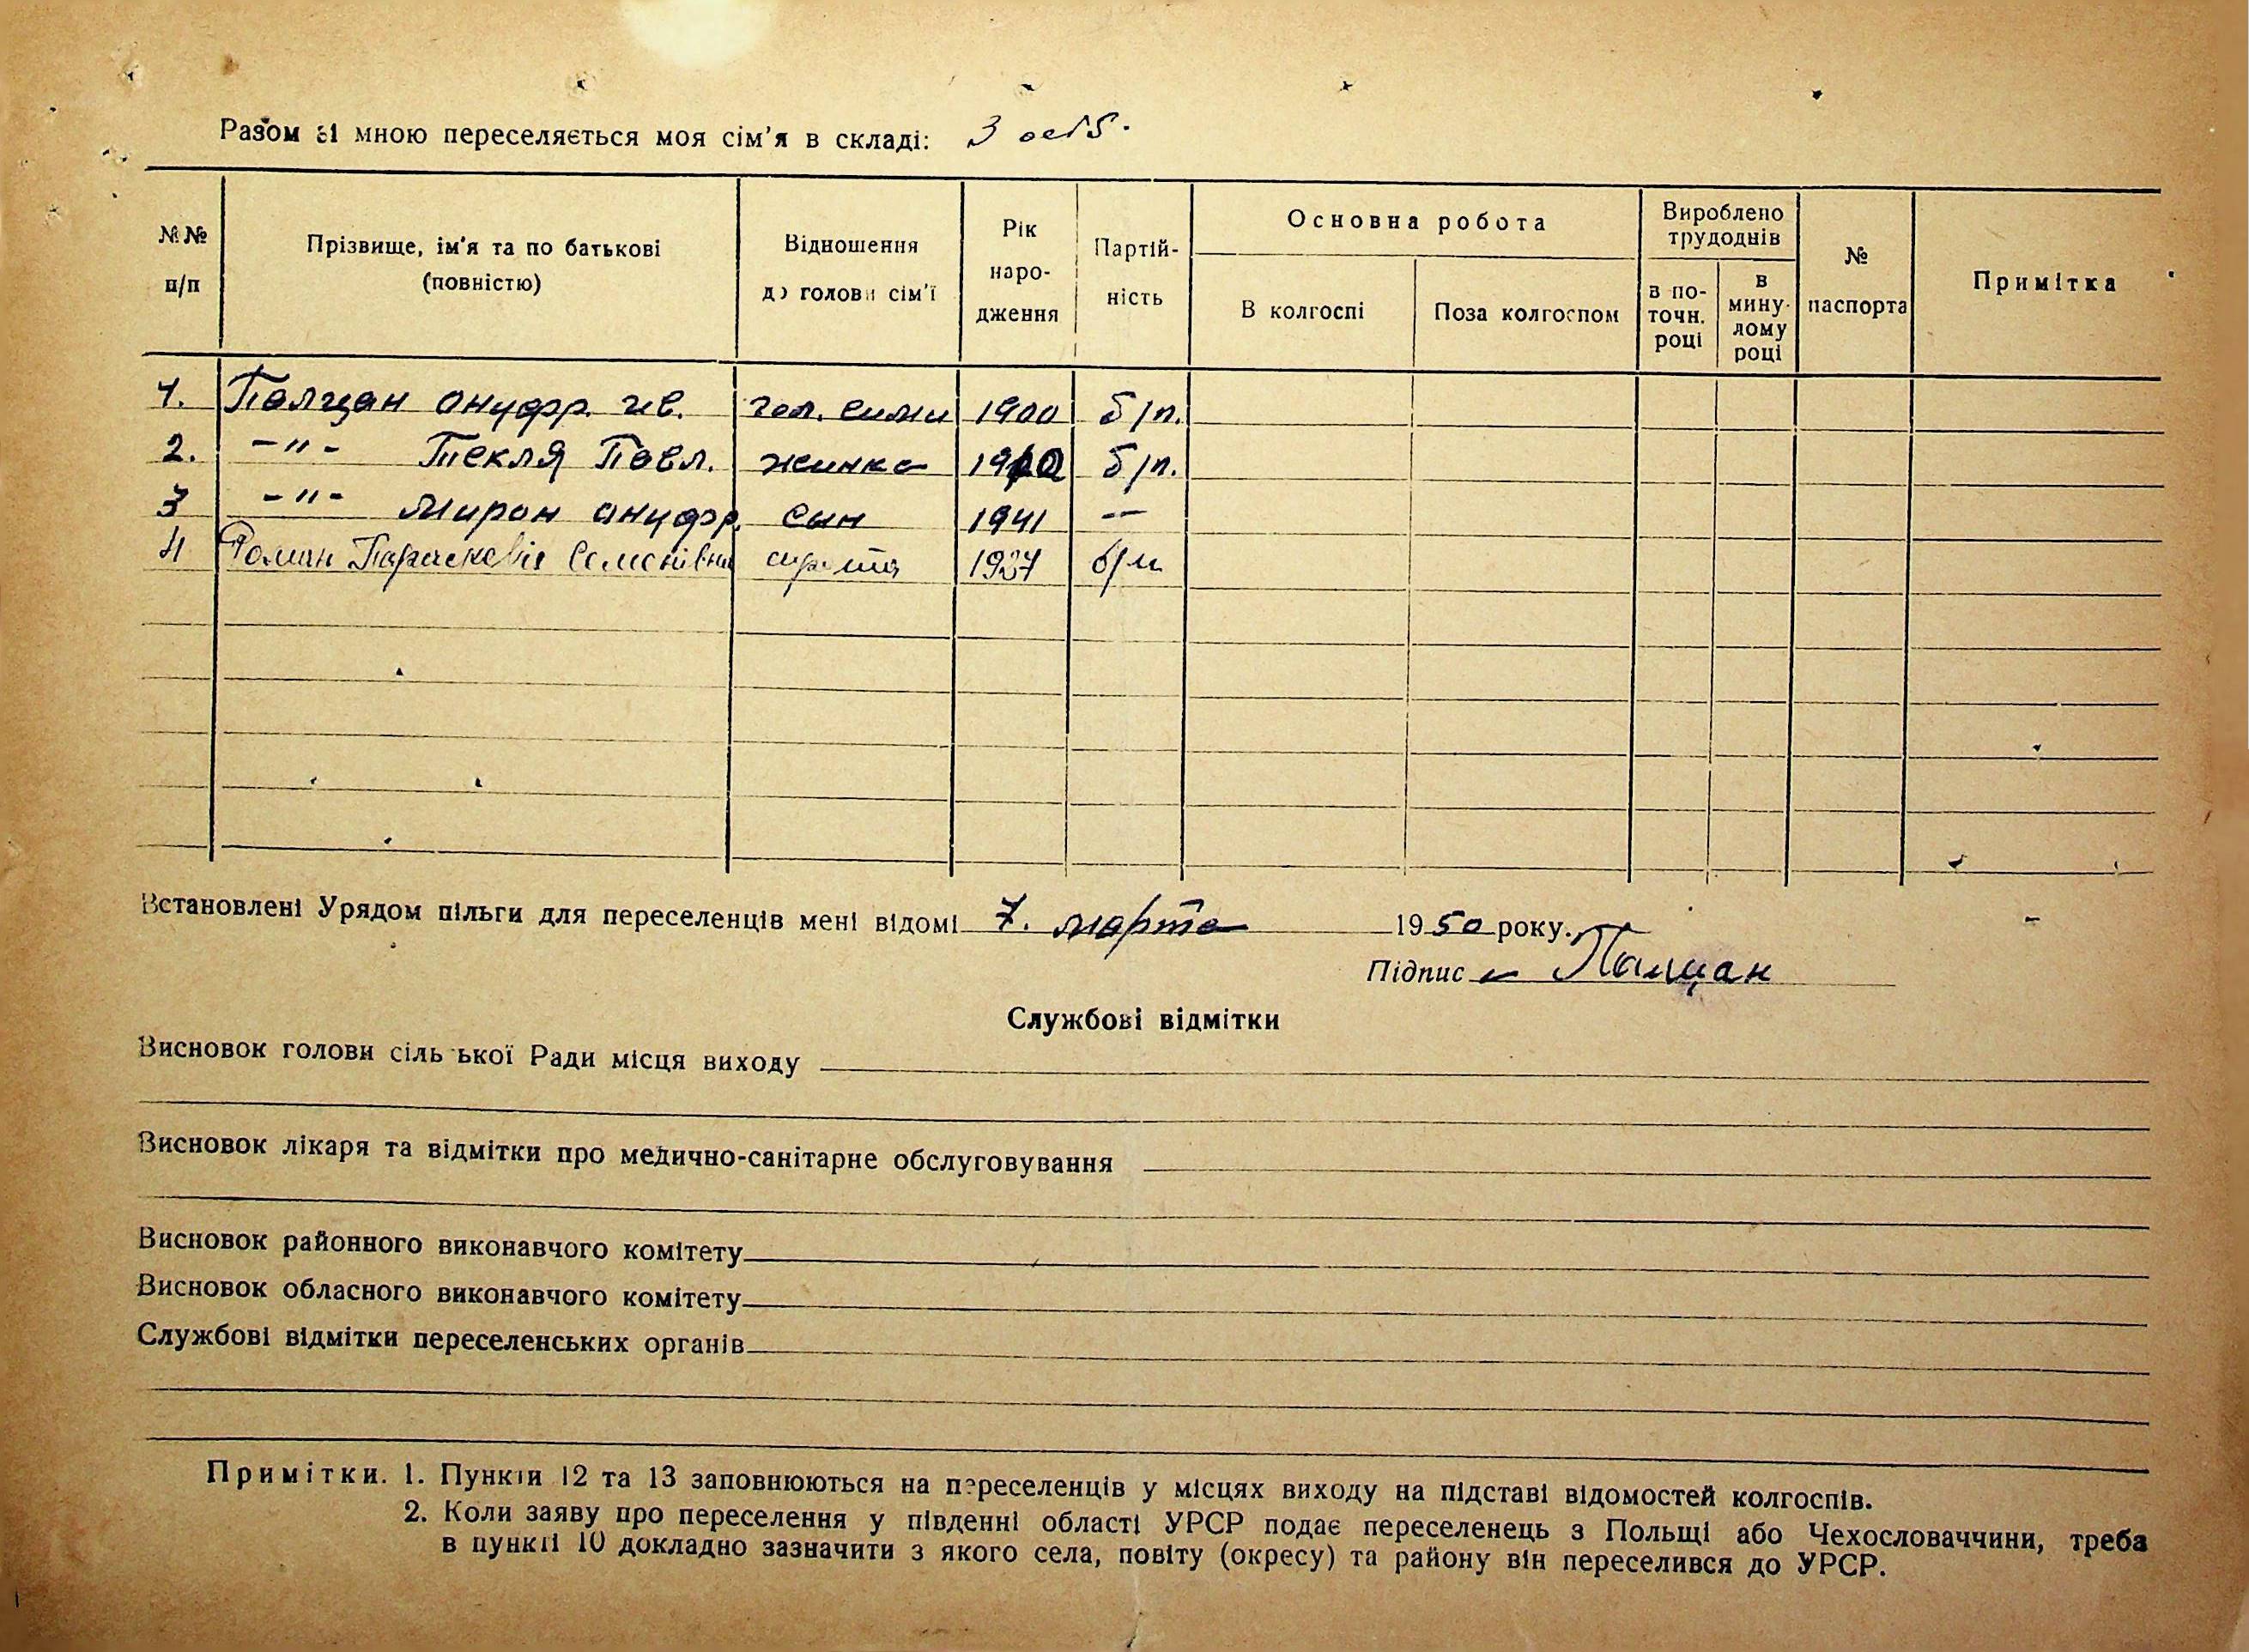 Разом зі мною переселяється моя сім'я в складі: 3 осіб.
№№ п/п
Прізвище, ім'я та по батькові (повністю)
Відношення до голови сім'ї
Рік народження
Партійність
Основна робота
В колгоспі
Поза колгоспом
Вироблено трудоднів
в поточн. році
в минулому році
№ паспорта
Примітка
1. Палцан Онуфр. Ив. гол. сими 1900 б/п.
2. -"- Текля Павл. жинка 1910 б/п.
3 -"- Мирон Онуфр. сын 1941 —
4 Роман Параскевія Семенівна сирота 1937
Встановлені Урядом пільги для переселенців мені відомі 7. марта 1950 року.
Підпис Палцан
Службові відмітки
Висновок голови сільської Ради місця виходу
Висновок лікаря та відмітки про медично-санітарне обслуговування
Висновок районного виконавчого комітету
Висновок обласного виконавчого комітету
Службові відмітки переселенських органів
Примітки. 1. Пункти 12 та 13 заповнюються на переселенців у місцях виходу на підставі відомостей колгоспів.
2. Коли заяву про переселення у південні області УРСР подає переселенець з Польщі або Чехословаччини, треба
в пункті 10 докладно зазначити з якого села, повіту (окресу) та району він переселився до УРСР.